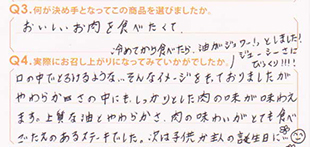 Q3.何が決め手となってこの商品を選びましたか。
おいしいお肉を食べたくて
冷めてから食べたら、油がジュワー!っとしました!
ジューシーさに
びっくり!!!
Q4.実際にお召し上がりになってみていかがでしたか。
口の中でとろけるような…そんなイメージをもっておりましたが
やわらかさの中にも、しっかりとした肉の味が味わえ
ます。上質な油とやわらかさ、肉の味わいがとても食べ
ごたえのあるステーキでした。次は子供か主人の誕生日に